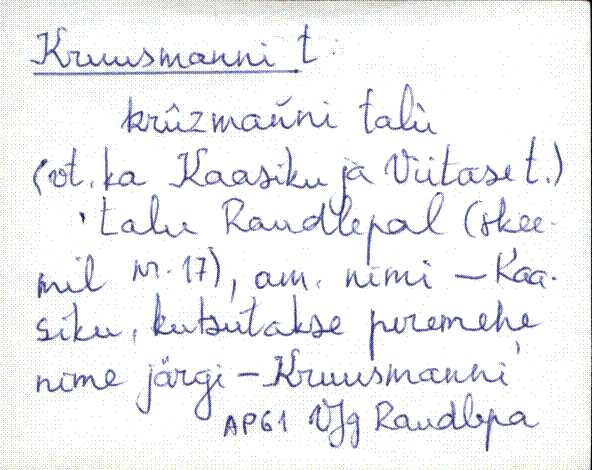 Kruusmanni t.
krûzmańni talù
(vt. ka Kaasiku ja Viitase t.)
'talu Raudlepal (skee-
mil nr. 17), am. nimi – Kaa-
siku, kutsutakse peremehe
nime järgi – Kruusmanni'
AP61 VJg Raudlepa